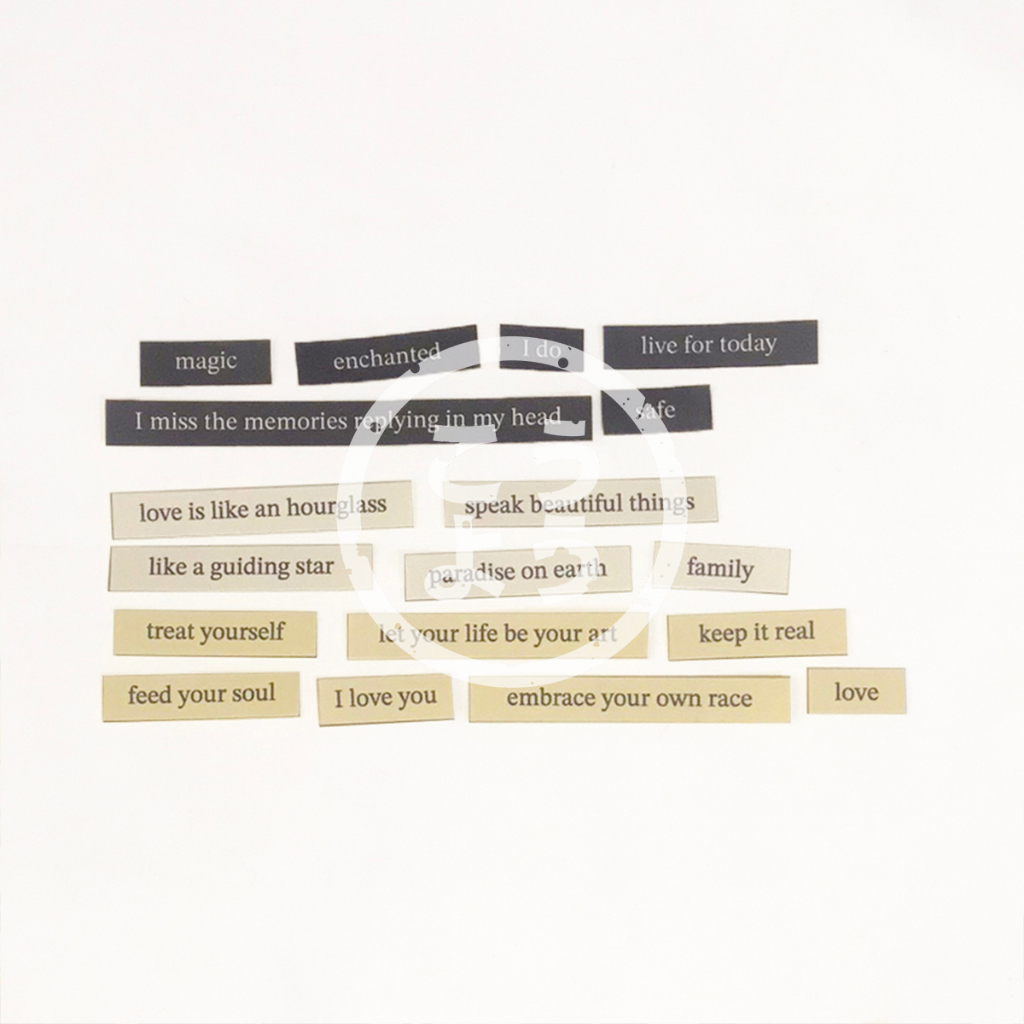 magic enchanted I do live for today
I miss the memories replying in my head safe
love is like an hourglass speak beautiful things
like a guiding star paradise on earth family
treat yourself let your life be your art keep it real
feed your soul I love you embrace your own race love